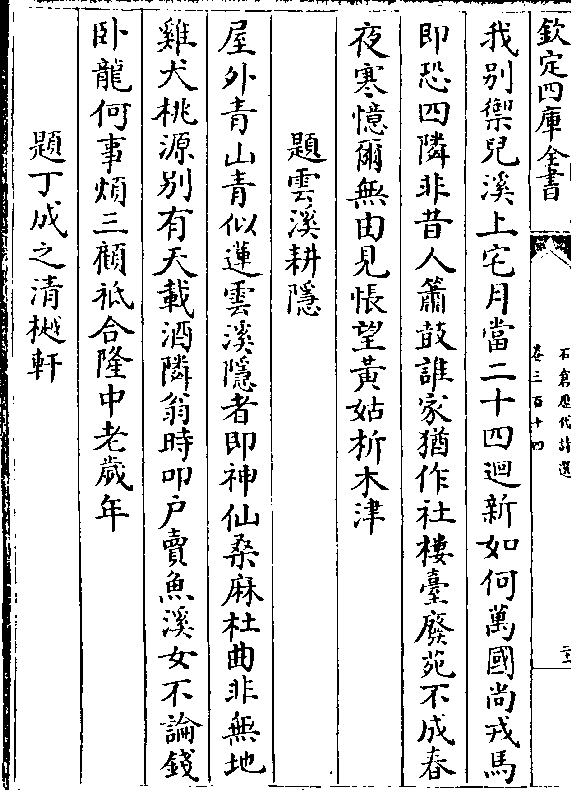 欽定四庫全書
石倉歷代詩選
卷三百十四
我别禦兒溪上宅月當二十四迴新如何萬國尚戎馬
即恐四隣非昔人簫鼓誰家猶作社樓臺廢苑不成春
夜寒憶爾無由見悵望黃姑析木津
題雲溪耕隱
屋外青山青似蓮雲溪隱者即神仙桑麻杜曲非無地
雞犬桃源别有天載酒隣翁時叩户賣魚溪女不論錢
卧龍何事煩三顧祗合隆中老歲年
題丁成之清樾軒